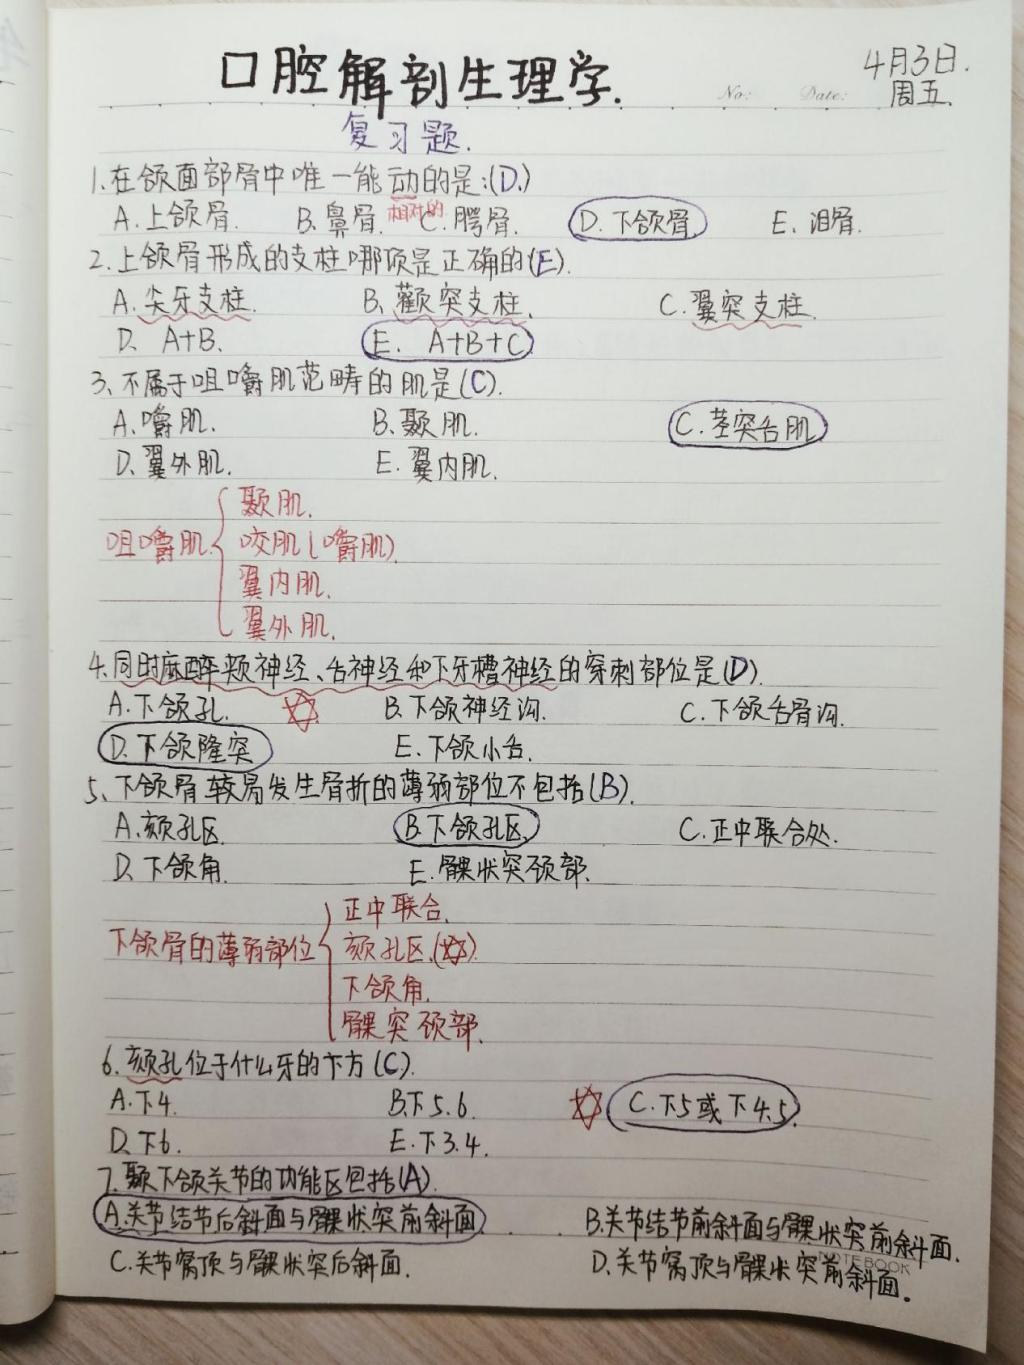 口腔解剖生理学.
No: Date:
4月3日.
周五.
复习题.
1.在颌面部骨中唯一能动的是:(D.)
相对的
A.上颌骨. B.鼻骨. C.腭骨. D.下颌骨. E.泪骨.
2.上颌骨形成的支柱哪项是正确的(E).
A.尖牙支柱. B.颧突支柱. C.翼突支柱.
D. A+B. E. A+B+C
3、不属于咀嚼肌范畴的肌是(C).
A.嚼肌. B.颞肌. C.茎突舌肌
D.翼外肌. E.翼内肌.
颞肌.
咀嚼肌. 咬肌(嚼肌)
翼内肌.
翼外肌.
4.同时麻醉颊神经、舌神经和下牙槽神经的穿刺部位是(D).
A.下颌孔. B.下颌神经沟. C.下颌舌骨沟.
D.下颌隆突 E.下颌小舌.
5、下颌骨较易发生骨折的薄弱部位不包括(B).
A.颏孔区. B.下颌孔区. C.正中联合处.
D.下颌角. E.髁状突颈部.
正中联合.
下颌骨的薄弱部位 颏孔区.(☆)
下颌角.
髁突颈部.
6.颏孔位于什么牙的下方(C).
A.下4. B.下5.6. C.下5或下4.5.
D.下6. E.下3.4.
7.颞下颌关节的功能区包括(A).
A.关节结节后斜面与髁状突前斜面 B.关节结节前斜面与髁状突前斜面.
C.关节窝顶与髁状突后斜面. D.关节窝顶与髁状突前斜面.
NOTEBOOK